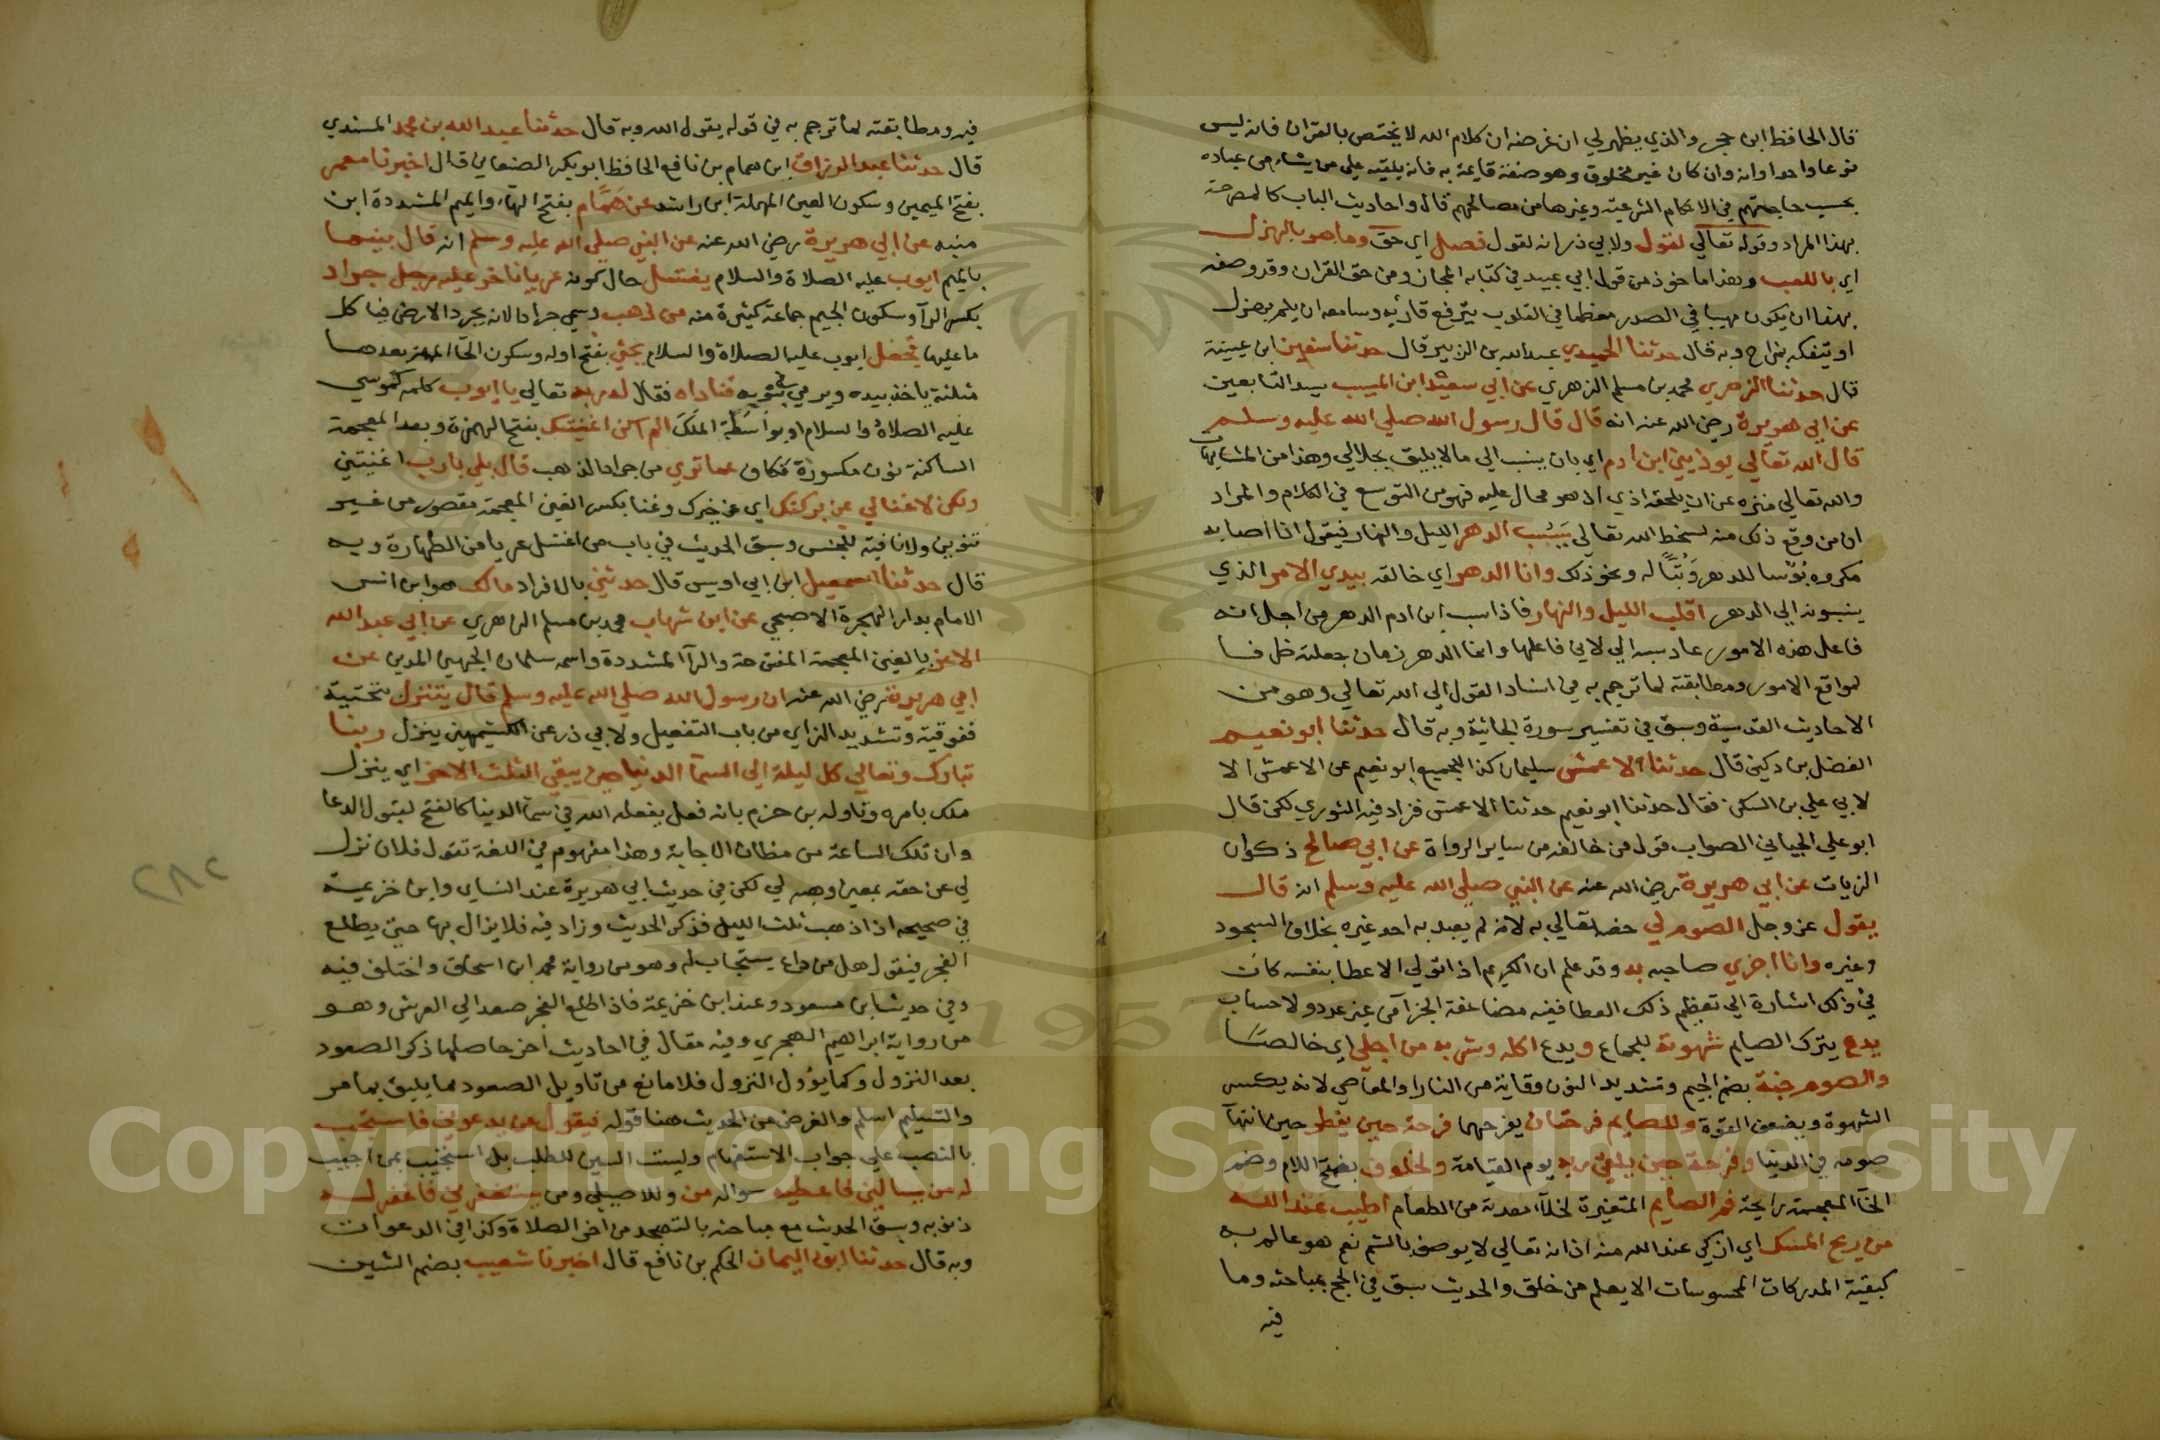 قال الحافظ ابن حجر والذي يظهر لي ان غرضه ان كلام الله لا يختص بالقران فانه ليس
نوعا واحدا وانه وان كان غير مخلوق وهو صفة قايمة به فانه يلقيه علي من يشاء من عباده
بحسب حاجتهم في الاحكام الشرعية وغيرها من مصالحهم قال واحاديث الباب كالمصرحة
بهذا المراد وقوله تعالي لقول ولابي ذر انه لقول فصل اي حق وما هو بالهزل
اي باللعب وهذا ماخوذ من قول ابي عبيد في كتابه المجاز ومن حق القران وقد وصفه
بهذا ان يكون مهيبا في الصدر معظما في القلوب يترفع قاريه وسامعه ان يلم بهزل
او يتفكه بمزاح وبه قال حدثنا الحميدي عبد الله بن الزبير قال حدثنا سفين ابن عيينة
قال حدثنا الزهري محمد بن مسلم الزهري عن ابي سعيد ابن المسيب سيد التابعين
عن ابي هريرة رضي الله عنه انه قال قال رسول الله صلي الله عليه وسلم
قال الله تعالي يوذيني ابن ادم اي بان ينسب الي ما لا يليق بجلالي وهذا من المتشابهات
والله تعالي منزه عن ان يلحقه اذي اذ هو محال عليه فهو من التوسع في الكلام والمراد
ان من وقع ذلك منه لسخط الله تعالي يسب الدهر الليل والنهار فيقول اذا اصابه
مكروه بؤسا للدهر وتبا له ونحو ذلك وانا الدهر اي خالقه بيدي الامر الذي
ينسبونه الي الدهر اقلب الليل والنهار فاذا سب ابن ادم الدهر من اجل انه
فاعل هذه الامور عاد سبه الي لاني فاعلها وانما الدهر زمان جعلته ظرفا
لمواقع الامور ومطابقته لما ترجم به في اسناد القول الي الله تعالي وهو من
الاحاديث القدسية وسبق في تفسير سورة الجاثية وبه قال حدثنا ابو نعيم
الفضل بن دكين قال حدثنا الاعمش سليمان كذا للجميع ابو نعيم عن الاعمش الا
لابي علي بن السكن فقال حدثنا ابو نعيم حدثنا الاعمش فزاد فيه الثوري لكن قال
ابو علي الجياني الصواب قول من خالفه من ساير الرواة عن ابي صالح ذكوان
الزيات عن ابي هريرة رضي الله عنه عن النبي صلي الله عليه وسلم انه قال
يقول عز وجل الصوم لي خصه تعالي به لانه لم يعبد به احد غيره بخلاف السجود
وغيره وانا اجزي صاحبه به وقد علم ان الكريم اذا تولي الاعطا بنفسه كان
في ذلك اشارة الي تعظيم ذلك العطا ففيه مضاعفة الجزآ من غير عدد ولا حساب
يدع يترك الصايم شهوته للجماع ويدع اكله وشربه من اجلي اي خالصًا
والصوم جنة بضم الجيم وتشديد النون وقاية من النار او المعاصي لانه يكسر
الشهوة ويضعف القوة وللصايم فرحتان يفرحهما فرحة حين يفطر حين انتهآ
صومه في الدنيا وفرحة حين يلقي ربه يوم القيامة ولخلوف بفتح اللام وضم
الخآ المعجمة رايحة فم الصايم المتغيرة لخلآ معدته من الطعام اطيب عند الله
من ريح المسك اي ازكي عند الله منه اذ انه تعالي لا يوصف بالشم نعم هو عالم به
كبقية المدركات المحسوسات الا يعلم من خلق والحديث سبق في الحج بمباحثه وما
فيه
فيه ومطابقته لما ترجم به في قوله يقول الله وبه قال حدثنا عبد الله بن محمد المسندي
قال حدثنا عبد الرزاق ابن همام بن نافع الحافظ ابو بكر الصنعاني قال اخبرنا معمر
بفتح الميمين وسكون العين المهملة ابن راشد عن همّام بفتح الهاء والميم المشددة ابن
منبه عن ابي هريرة رضي الله عنه عن النبي صلي الله عليه وسلم انه قال بينما
بالميم ايوب عليه الصلاة والسلام يغتسل حال كونه عريانا خر عليه رجل جراد
بكسر الرآ وسكون الجيم جماعة كثيرة منه من ذهب وسمي جرادا لانه يجرد الارض فياكل
ما عليها فجعل ايوب عليه الصلاة والسلام يحثي بفتح اوله وسكون الحآ المهملة بعدها
مثلثة ياخذ بيده ويرمي في ثوبه فناداه فقال له ربه تعالي يا ايوب كلمه كموسي
عليه الصلاة والسلام او بواسطة الملك الم اكن اغنيتك بفتح الهمزة وبعد المعجمة
الساكنة نون مكسورة فكاف عما تري من جراد الذهب قال بلي يا رب اغنيتني
ولكن لا غنا لي عن بركتك اي عن خيرك وغنا بكسر الغين المعجمة مقصور من غير
تنوين ولا نافية للجنس وسبق الحديث في باب من اغتسل عريانا من الطهارة وبه
قال حدثنا اسمعيل ابن ابي اويس قال حدثني بالافراد مالك هو ابن انس
الامام بدار الهجرة الاصبحي عن ابن شهاب محمد بن مسلم الزهري عن ابي عبد الله
الاغر بالغين المعجمة المفتوحة والرآ المشددة واسمه سلمان الجهني المدني عن
ابي هريرة رضي الله عنه ان رسول الله صلي الله عليه وسلم قال يتنزل بتحتية
ففوقية وتشديد الزاي من باب التفعيل ولابي ذر عن الكشميهني ينزل ربنا
تبارك وتعالي كل ليلة الي السمآ الدنيا حين يبقي الثلث الاخر اي ينزل
ملك بامره وتاوله بن حزم بانه فعل يفعله الله في سمآ الدنيا كالفتح لقبول الدعا
وان تلك الساعة من مظان الاجابة وهذا مفهوم في اللغة تقول فلان نزل
لي عن حقه بمعني وهبه لي لكن في حديث ابي هريرة عند النساي وابن خزيمة
في صحيحه اذا ذهب ثلث الليل فذكر الحديث وزاد فيه فلا يزال بها حتي يطلع
الفجر فيقول هل من داع يستجاب له وهو من رواية محمد ابن اسحاق واختلف فيه
وفي حديث ابن مسعود وعند ابن خزيمة فاذا طلع الفجر صعد الي العرش وهو
من رواية ابراهيم الهجري وفيه مقال في احاديث اخر حاصلها ذكر الصعود
بعد النزول وكما يؤول النزول فلا مانع من تاويل الصعود بما يليق بما مر
والتسليم اسلم والغرض من الحديث هنا قوله فيقول من يدعوني فاستجيب
بالنصب علي جواب الاستفهام وليست السين للطلب بل استجيب بمعني اجيب
له من يسالني فاعطيه سواله من وللاصيلي ومن يستغفرني فاغفر له
ذنوبه وسبق الحديث مع مباحثه بالتهجد من اخر الصلاة وكذا في الدعوات
وبه قال حدثنا ابو اليمان الحكم بن نافع قال اخبرنا شعيب بضم الشين
٢٨٢
Copyright © King Saud University
1957